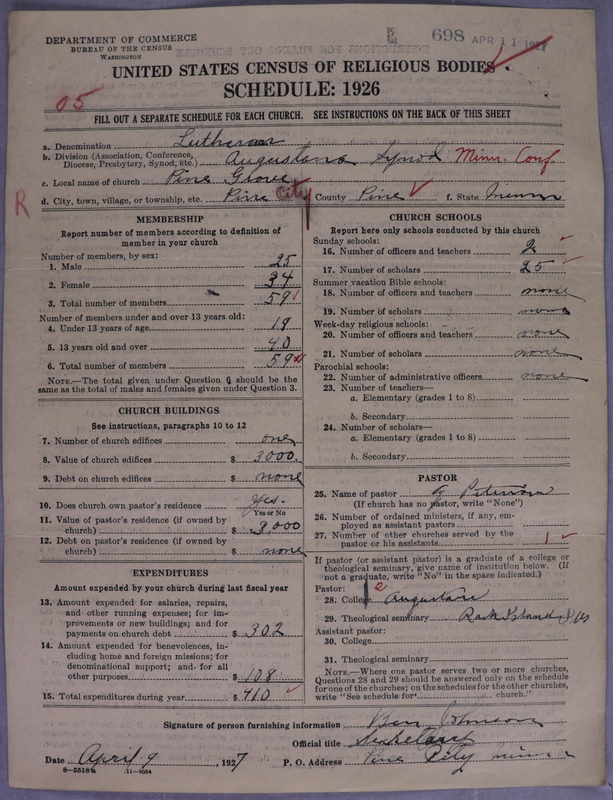 DEPARTMENT OF COMMERCE
BUREAU OF THE CENSUS
WASHINGTON
698 APR 11 1927
UNITED STATES CENSUS OF RELIGIOUS BODIES
SCHEDULE: 1926
05
FILL OUT A SEPARATE SCHEDULE FOR EACH CHURCH. SEE INSTRUCTIONS ON THE BACK OF THIS SHEET
a. Denomination Lutheran
b. Division (Association, Conference, Diocese, Presbytery, Synod, etc.) Augustana Synod Minn. Conf
c. Local name of church Pine Grove
R
d. City, town, village, or township, etc. Pine City County Pine f. State Minn
MEMBERSHIP
Report number of members according to definition of
member in your church
Number of members, by sex:
1. Male 25
2. Female 34
3. Total number of members 59
Number of members under and over 13 years old:
4. Under 13 years of age 19
5. 13 years old and over 40
6. Total number of members 59
NOTE.—The total given under Question 6 should be the
same as the total of males and females given under Question 3.
CHURCH BUILDINGS
See instructions, paragraphs 10 to 12
7. Number of church edifices one
8. Value of church edifices $ 3000.
9. Debt on church edifices $ none
10. Does church own pastor's residence yes.
Yes or No
11. Value of pastor's residence (if owned by
church) $ 3,000
12. Debt on pastor's residence (if owned by
church) $ none
EXPENDITURES
Amount expended by your church during last fiscal year
13. Amount expended for salaries, repairs,
and other running expenses; for im-
provements or new buildings; and for
payments on church debt $ 302
14. Amount expended for benevolences, in-
cluding home and foreign missions; for
denominational support; and for all
other purposes $ 108
15. Total expenditures during year $ 410
CHURCH SCHOOLS
Report here only schools conducted by this church
Sunday schools:
16. Number of officers and teachers 2
17. Number of scholars 25
Summer vacation Bible schools:
18. Number of officers and teachers none
19. Number of scholars none
Week-day religious schools:
20. Number of officers and teachers none
21. Number of scholars none
Parochial schools:
22. Number of administrative officers none
23. Number of teachers—
a. Elementary (grades 1 to 8)
b. Secondary
24. Number of scholars—
a. Elementary (grades 1 to 8)
b. Secondary
PASTOR
25. Name of pastor G Peterson
(If church has no pastor, write "None")
26. Number of ordained ministers, if any, em-
ployed as assistant pastors
27. Number of other churches served by the
pastor or his assistants 1
If pastor (or assistant pastor) is a graduate of a college or
theological seminary, give name of institution below. (If
not a graduate, write "No" in the space indicated.)
Pastor: 2
28. College Augustana
29. Theological seminary Rock Island Ills
Assistant pastor:
30. College
31. Theological seminary
NOTE.—Where one pastor serves two or more churches,
Questions 28 and 29 should be answered only on the schedule
for one of the churches; on the schedules for the other churches,
write "See schedule for church."
Signature of person furnishing information Ben Johnson
Official title
Date April 9 1927 P. O. Address Pine City Minn
8-5518a 11-9054